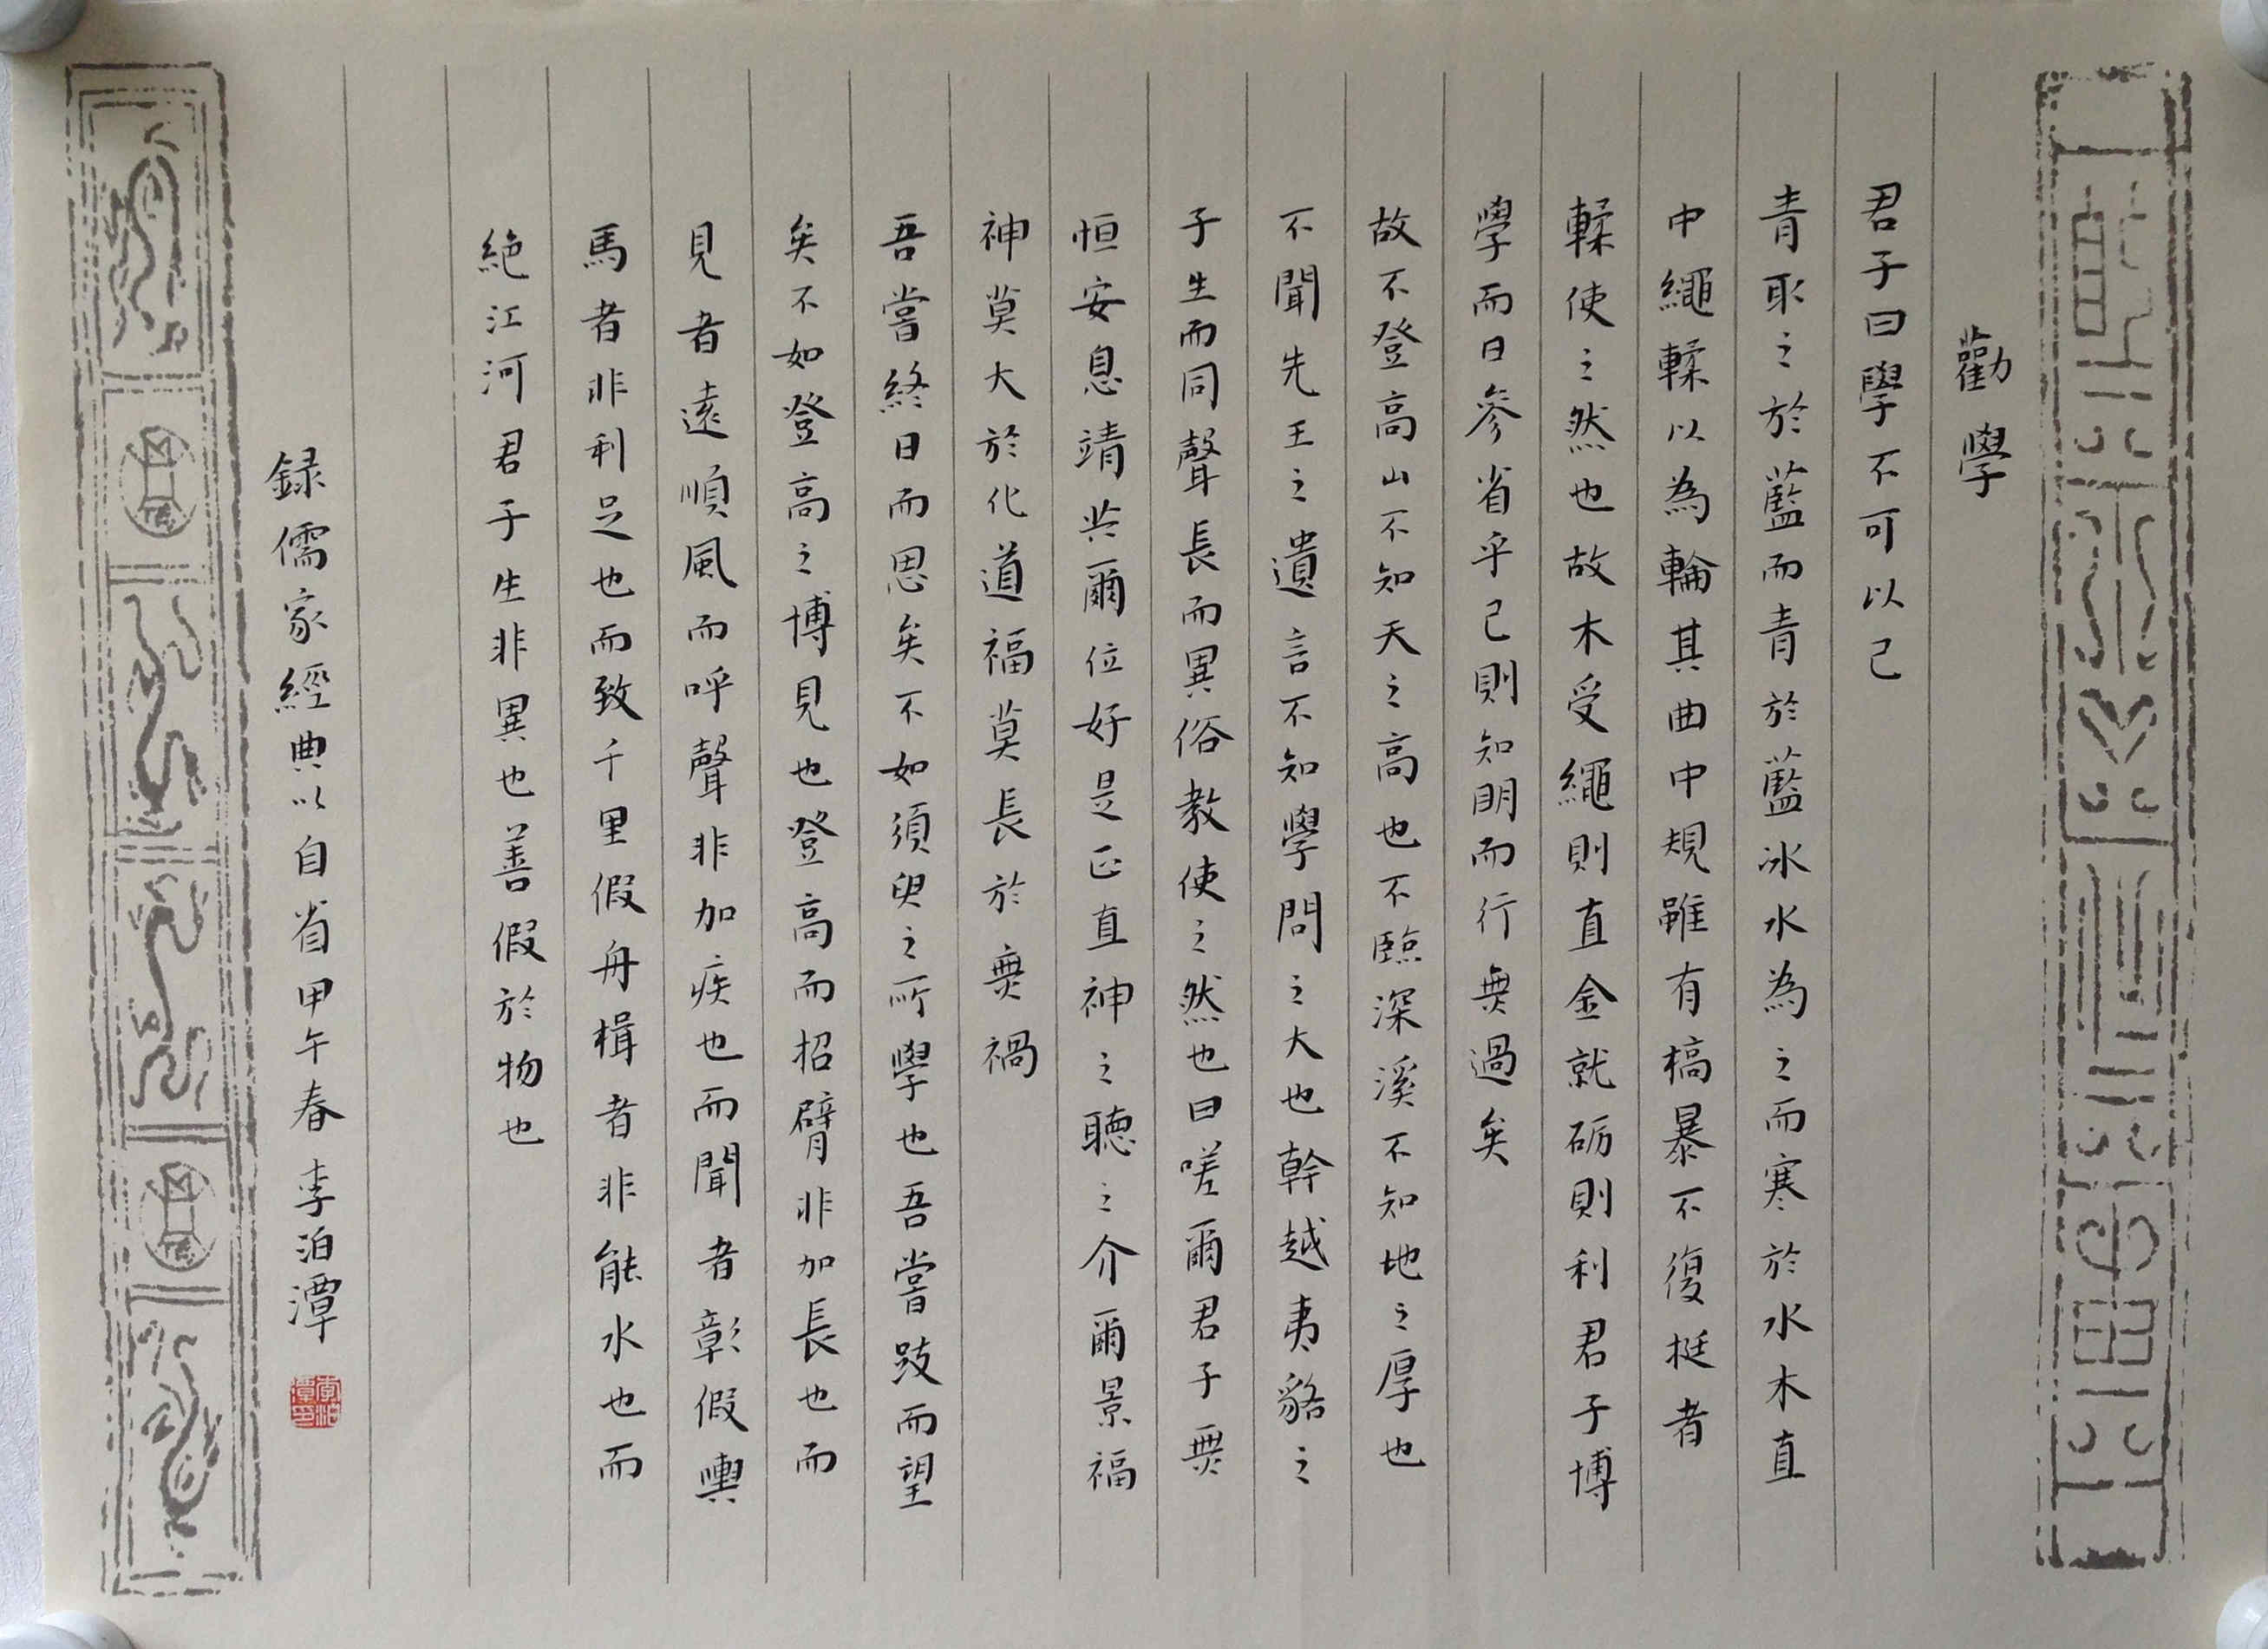 勸學
君子曰學不可以已
青取之於藍而青於藍冰水為之而寒於水木直
中繩輮以為輪其曲中規雖有槁暴不復挺者
輮使之然也故木受繩則直金就砺則利君子博
學而日參省乎己則知明而行無過矣
故不登高山不知天之高也不臨深溪不知地之厚也
不聞先王之遺言不知學問之大也幹越夷貉之
子生而同聲長而異俗教使之然也曰嗟爾君子無
恒安息靖共爾位好是正直神之聽之介爾景福
神莫大於化道福莫長於無禍
吾嘗終日而思矣不如須臾之所學也吾嘗跂而望
矣不如登高之博見也登高而招臂非加長也而
見者遠順風而呼聲非加疾也而聞者彰假輿
馬者非利足也而致千里假舟楫者非能水也而
絶江河君子生非異也善假於物也
録儒家經典以自省甲午春李泊潭
李泊潭印